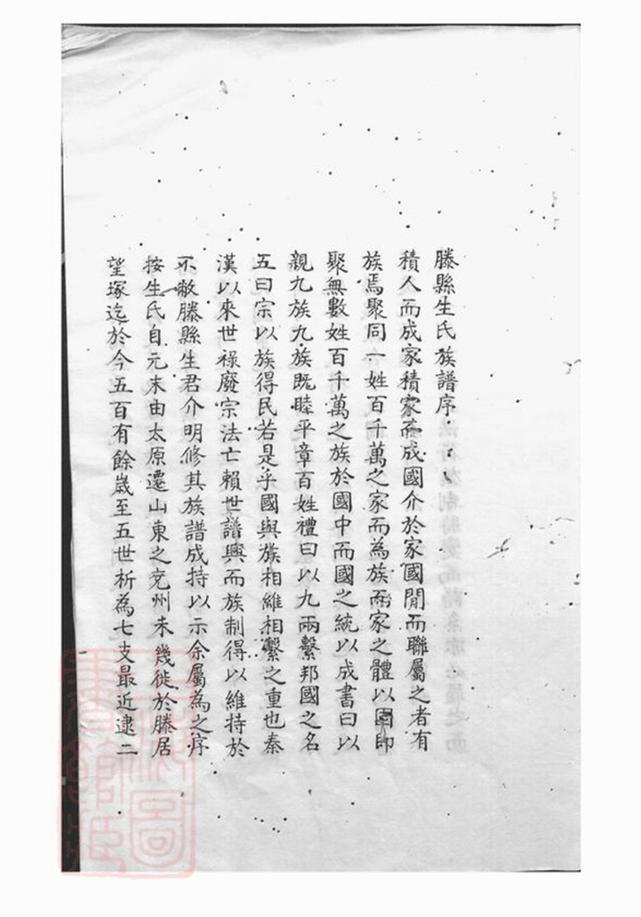 滕縣生氏族譜序
積人而成家積家而成國介於家國閒而聯屬之者有
族焉聚同一姓百千萬之家而為族而家之體以固即
聚無數姓百千萬之族於國中而國之統以成書曰以
親九族九族既睦平章百姓禮曰以九兩繫邦國之名
五曰宗以族得民若是乎國與族相維相繫之重也秦
漢以來世祿廢宗法亡賴世譜興而族制得以維持於
不敝滕縣生君介明修其族譜成持以示余屬為之序
按生氏自元末由太原遷山東之兗州未幾徙於滕居
望塚迄於今五百有餘歲至五世析為七支最近逮二